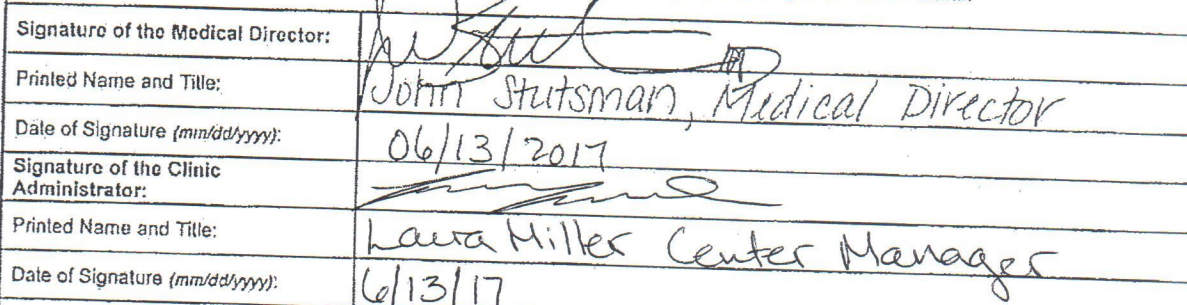 Signature of the Medical Director:
MD
Printed Name and Title: John Stutsman, Medical Director
Date of Signature (mm/dd/yyyy): 06/13/2017
Signature of the Clinic
Administrator:
Printed Name and Title: Laura Miller Center Manager
Date of Signature (mm/dd/yyyy): 6/13/17